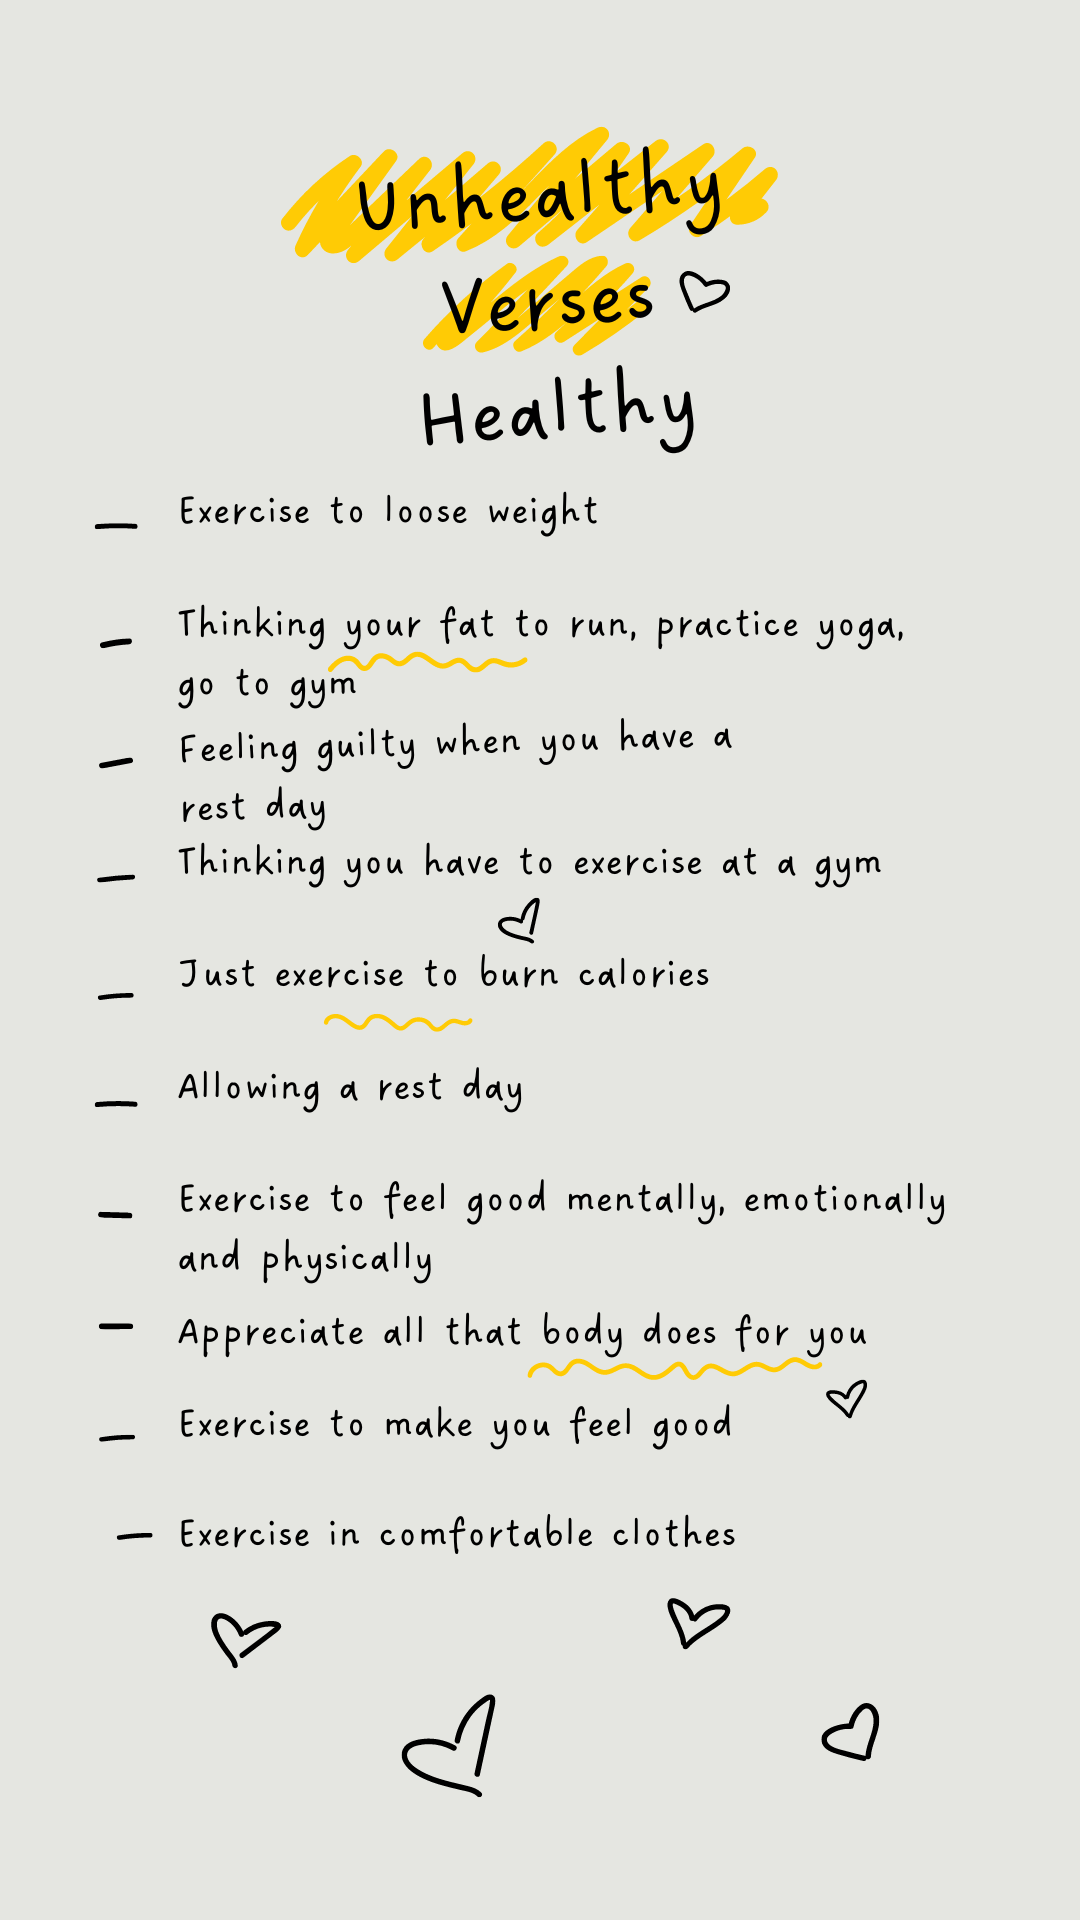 Unhealthy
Verses
Healthy
Exercise to loose weight
Thinking your fat to run, practice yoga,
go to gym
Feeling guilty when you have a
rest day
Thinking you have to exercise at a gym
Just exercise to burn calories
Allowing a rest day
Exercise to feel good mentally, emotionally
and physically
Appreciate all that body does for you
Exercise to make you feel good
Exercise in comfortable clothes